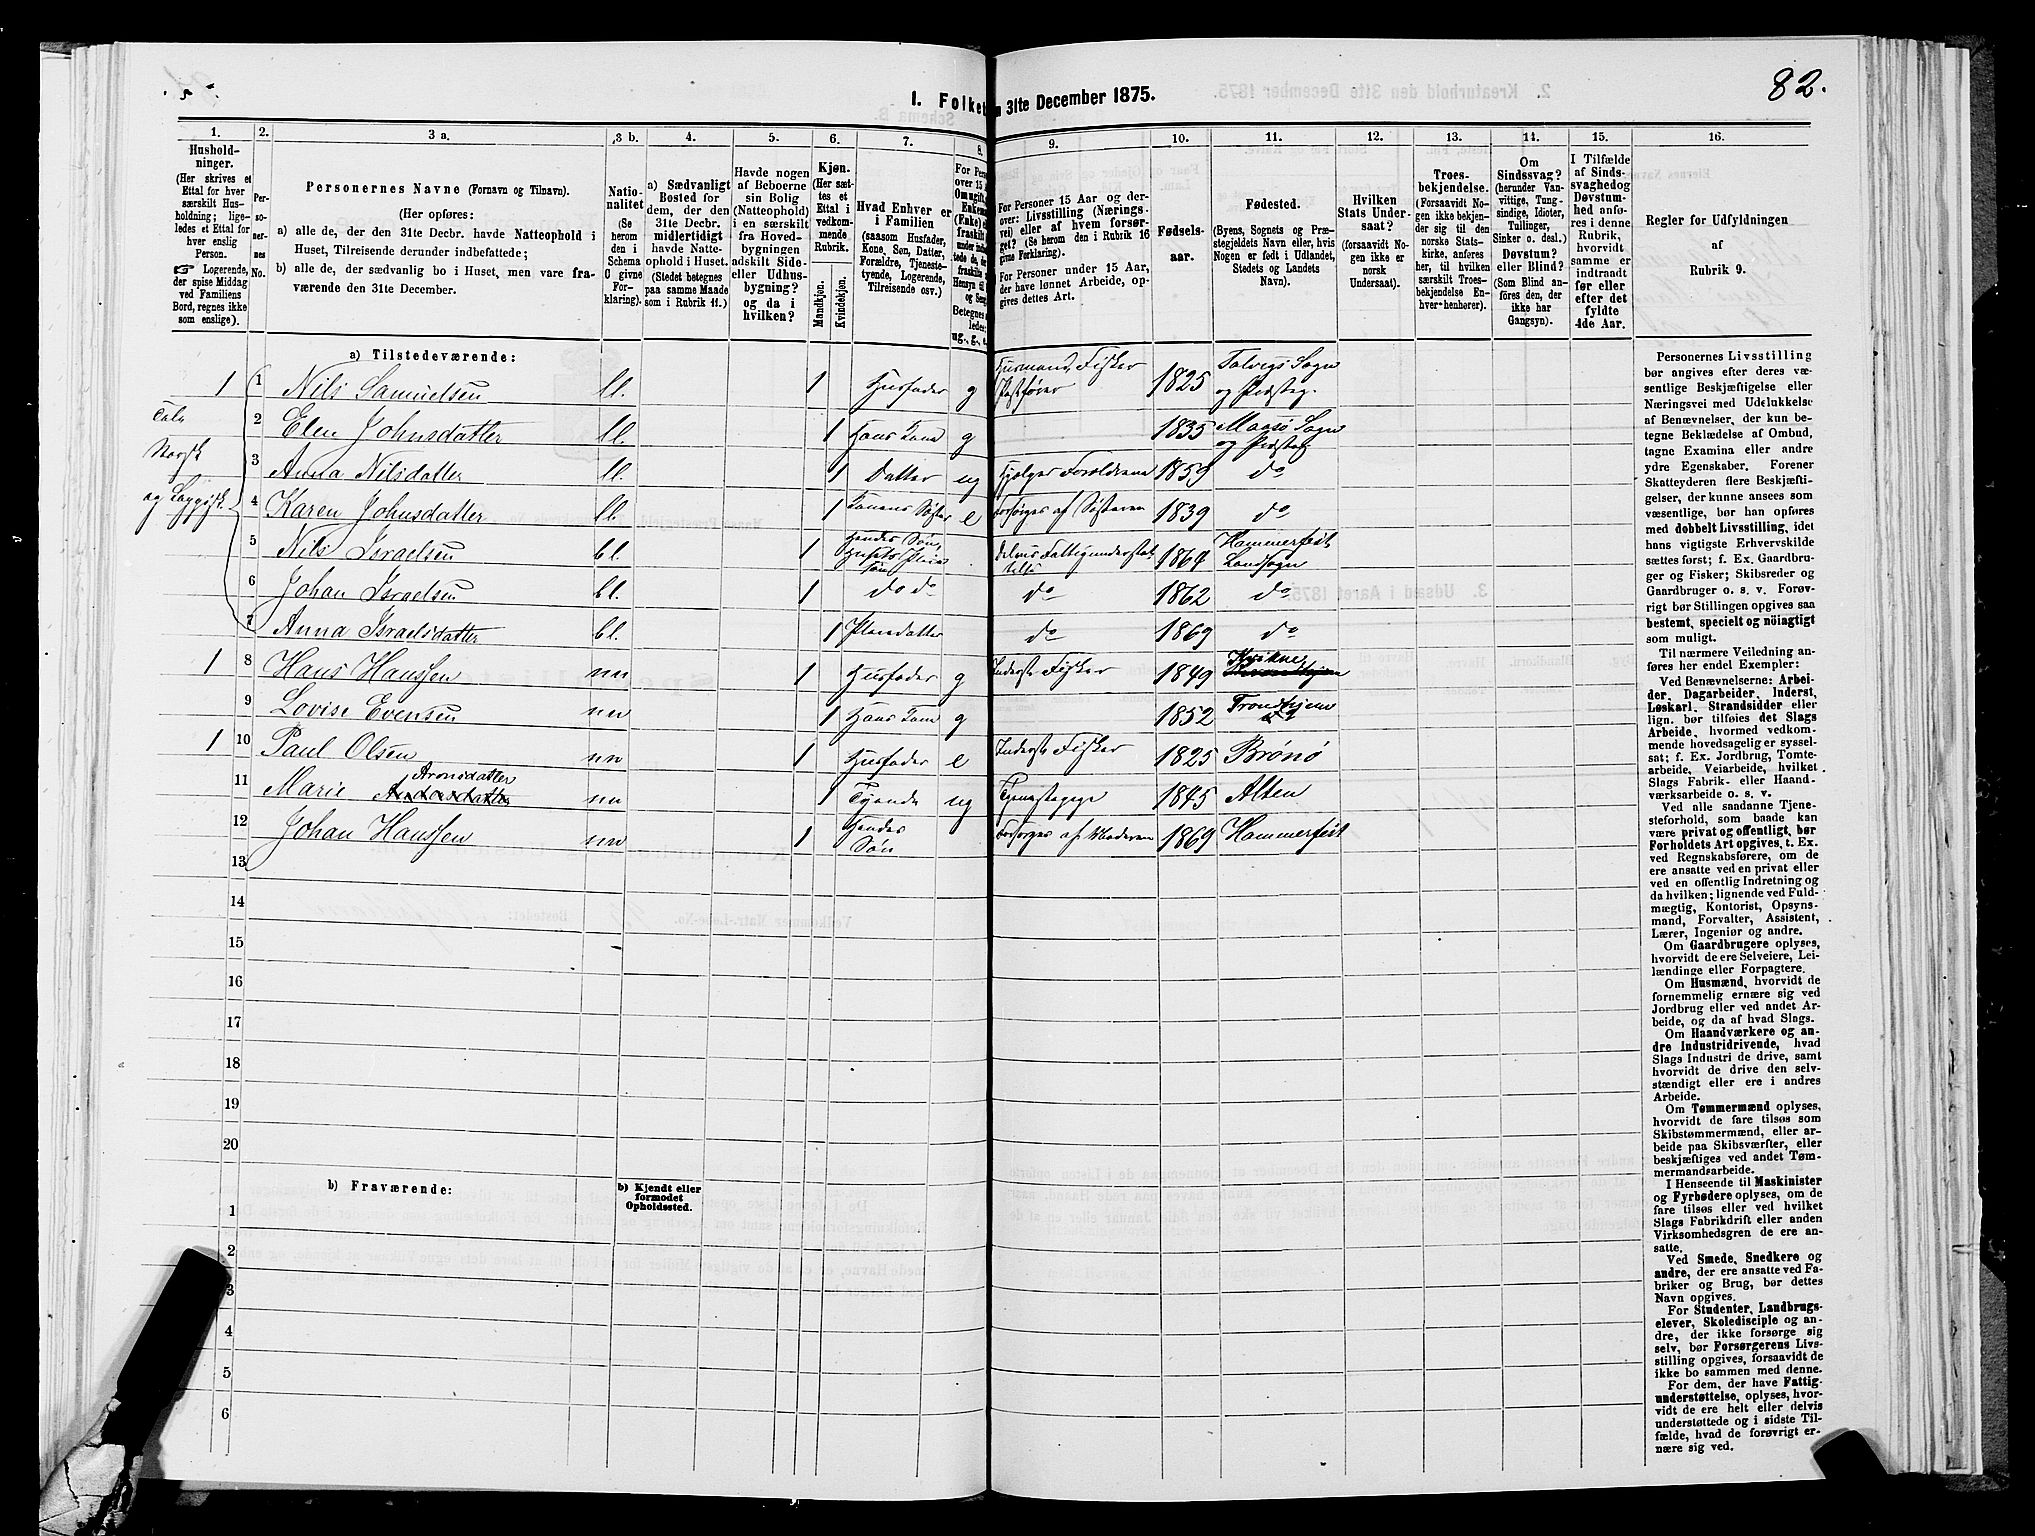 82.
I. Folket n 31te December 1875.
1. 2. 3 a. 3 b. 4. 5. 6. 7. 8. 9. 10. 11. 12. 13. 14. 15. 16.
Hushold-
ninger.
(Her skrives et
Ettal for hver
særskilt Hus-
holdning; lige-
ledes et Ettal for
hver enslig
Person.
☞ Logerende,
der spise Middag
ved Familiens
Bord, regnes ikke
som enslige).
Per-
so-
ner-
nes
No.
Personernes Navne (Fornavn og Tilnavn).
(Her opføres:
a) alle de, der den 31te Decbr. havde Natteophold i
Huset, Tilreisende derunder indbefattede;
b) alle de, der sædvanlig bo i Huset, men vare fra-
værende den 31te December.
Natio-
nalitet
(Se
herom
den i
Schema
C givne
For-
klaring).
a) Sædvanligt
Bosted for
dem, der den
31te Decbr.
midlertidigt
havde Natte-
ophold i Huset.
(Stedet betegnes
paa samme Maade
som i Rubrik 11.)
Havde nogen
af Beboerne
sin Bolig
(Natteophold)
i en særskilt
fra Hoved-
bygningen
adskilt Side-
eller Udhus-
bygning?
og da i
hvilken?
Kjøn.
(Her sæt-
tes et
Ettal i
vedkom-
mende
Rubrik.
Mandkjøn.
Kvindekjøn.
Hvad Enhver er
i Familien
(saasom Husfader,
Kone, Søn, Datter,
Forældre, Tjeneste-
tyende, Logerende,
Tilreisende osv.)
For Personer 15 Aar og der-
over: Livsstilling (Nærings-
vei) eller af hvem forsør-
get? (Se herom den i Rubrik 16
givne Forklaring).
For Personer under 15 Aar,
der have lønnet Arbeide, op-
gives dettes Art.
Fødsels-
aar.
Fødested.
(Byens, Sognets og Præ-
stegjeldets Navn eller, hvis
Nogen er født i Udlandet,
Stedets og Landets
Navn).
Hvilken
Stats Under-
saat?
(forsaavidt No-
gen ikke er
norsk
Undersaat).
Troes-
bekjendelse.
(Forsaavidt No-
gen ikke bekjen-
der sig til den
norske Stats-
kirke, anføres
her, til hvilken
særskilt Troes-
bekjendelse En-
hver henhører).
Om
Sindssvag?
(herunder Van-
vittige, Tung-
sindige, Idioter,
Tullinger,
Sinker o. desl.)
Døvstum?
eller Blind?
(Som Blind an-
føres den, der
ikke har
Gangsyn).
I Tilfælde
af Sinds-
svaghed og
Døvstum-
hed anfø-
res i denne
Rubrik,
hvorvidt
samme er
indtraadt
før eller
efter det
fyldte
4de Aar.
Regler for Udfyldningen
af
Rubrik 9.
a) Tilstedeværende:
Norsk
1 1 Nils Samuelsen ll. 1 Husfader g Husmand, Fisker Postfører 1825 Talvigs Sogn og Prdsteg.
2 Elen Johnsdatter ll. 1 Hans Kone g 1835 Maasø Sogn
3 Anna Nilsdatter ll. 1 Datter ug Hjælper Forældrene 1859 do
4 Karen Johnsdatter ll. 1 Konens Søster e Forsørges af Søsteren 1839 do
5 Nils Israelsen bl. 1 Hendes Søn, Husets Pleiesøn 1864 Hammerfest Landsogn
6 Johan Israelsen bl. 1 do do do 1862 do
7 Anna Israelsdatter bl. 1 Pleiedatter do 1869 do
1 8 Hans Hanssen nn 1 Husfader g Inderst Fisker 1849 Kvikne
9 Lovise Evensen nn 1 Hans Kone g 1852 Trondhjem
1 10 Paul Olsen nn 1 Husfader e Inderst Fisker 1825 Brønø
11 Marie Aronsdatter nn 1 Tjende ug Tjenestepige 1845 Alten
12 Johan Hanssen nn 1 Hendes Søn Forsørges af Moderen 1869 Hammerfest
13
14
15
16
17
18
19
20
b) Fraværende:
b) Kjendt eller
formodet
Opholdssted.
1
2
3
4
5
6
Personernes Livsstilling
bør angives efter deres væ-
sentlige Beskjæftigelse eller
Næringsvei med Udelukkelse
af Benævnelser, der kun be-
tegne Beklædelse af Ombud,
tagne Examina eller andre
ydre Egenskaber. Forener
Skatteyderen flere Beskjæfti-
gelser, der kunne ansees som
væsentlige, bør han opføres
med dobbelt Livsstilling, idet
hans vigtigste Erhvervskilde
sættes først; f. Ex. Gaardbru-
ger og Fisker; Skibsreder og
Gaardbruger o. s. v. Forøv-
rigt bør Stillingen opgives saa
bestemt, specielt og nøiagtigt
som muligt.
Til nærmere Veiledning an-
føres her endel Exempler:
Ved Benævnelserne: Arbei-
der, Dagarbeider, Inderst,
Løskarl, Strandsidder eller
lign. bør tilføies det Slags
Arbeide, hvormed vedkom-
mende hovedsagelig er syssel-
sat; f. Ex. Jordbrug, Tomte-
arbeide, Veiarbeide, hvilket
Slags Fabrik- eller Haand-
værksarbeide o. s. v.
Ved alle saadanne Tjene-
steforhold, som baade kan
være privat og offentligt, bør
Forholdets Art opgives, t. Ex.
ved Regnskabsførere, om de
ere ansatte ved en privat eller
ved en offentlig Indretning og
da hvilken; lignende ved Fuld-
mægtig, Kontorist, Opsyns-
mand, Forvalter, Assistent,
Lærer, Ingeniør og andre.
Om Gaardbrugere oplyses,
hvorvidt de ere Selveiere, Lei-
lændinge eller Forpagtere.
Om Husmænd, hvorvidt de
fornemmelig ernære sig ved
Jordbrug eller ved andet Ar-
beide, og da af hvad Slags.
Om Haandværkere og an-
dre Industridrivende, hvad
Slags Industri de drive, samt
hvorvidt de drive den selv-
stændigt eller ere i andres
Arbeide.
Om Tømmermænd oplyses,
hvorvidt de fare tilsøs som
Skibstømmermænd, eller ar-
beide paa Skibsværfter, eller
beskjæftiges ved andet Tøm-
mermandsarbeide.
I Henseende til Maskinister
og Fyrbødere oplyses, om de
fare tilsøs eller ved hvilket
Slags Fabrikdrift eller anden
Virksomhedsgren de ere an-
satte.
Ved Smede, Snedkere og
andre, der ere ansatte ved Fa-
briker og Brug, bør dettes
Navn opgives.
For Studenter, Landbrugs-
elever, Skoledisciple og an-
dre, der ikke forsørge sig
selv, bør Forsørgerens Livs-
stilling opgives, forsaavidt de
ikke bo sammen med denne.
For dem, der have Fattig-
understøttelse, oplyses, hvor-
vidt de ere helt eller delvis
understøttede og i sidste Til-
fælde, hvad de forøvrigt er-
nære sig ved.